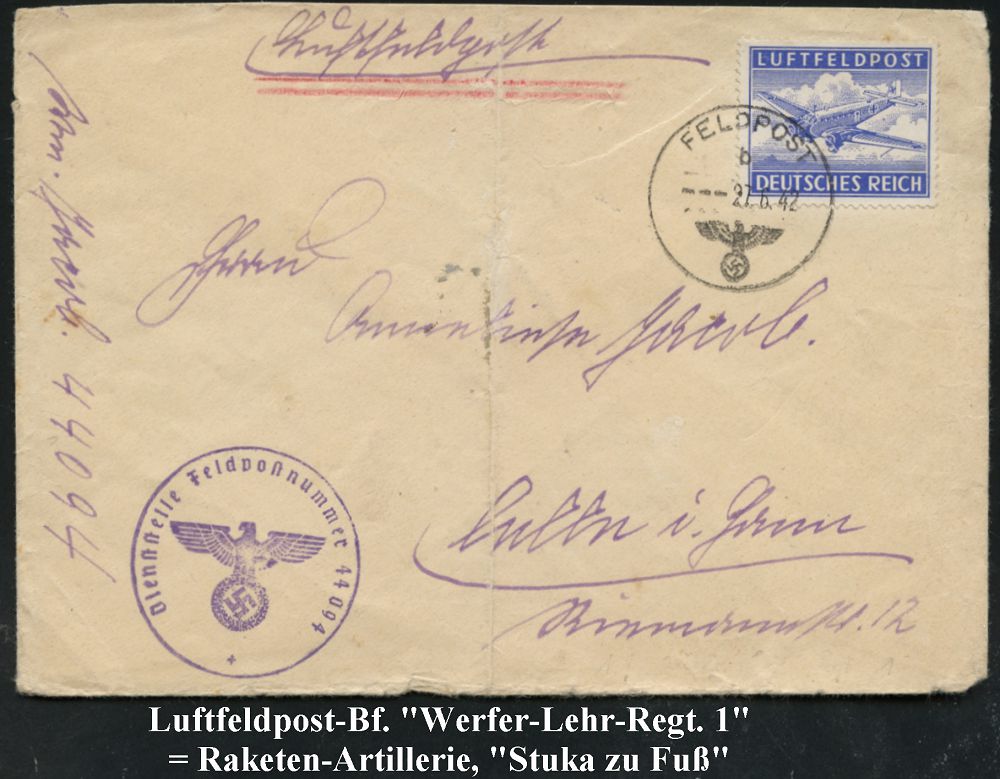 Luftfeldpost
LUFTFELDPOST
DEUTSCHES REICH
FELDPOST
b
27.6.42
Herrn
Jacob.
i. Hann
12
44094
Dienststelle Feldpostnummer 44094
Luftfeldpost-Bf. "Werfer-Lehr-Regt. 1"
= Raketen-Artillerie, "Stuka zu Fuß"